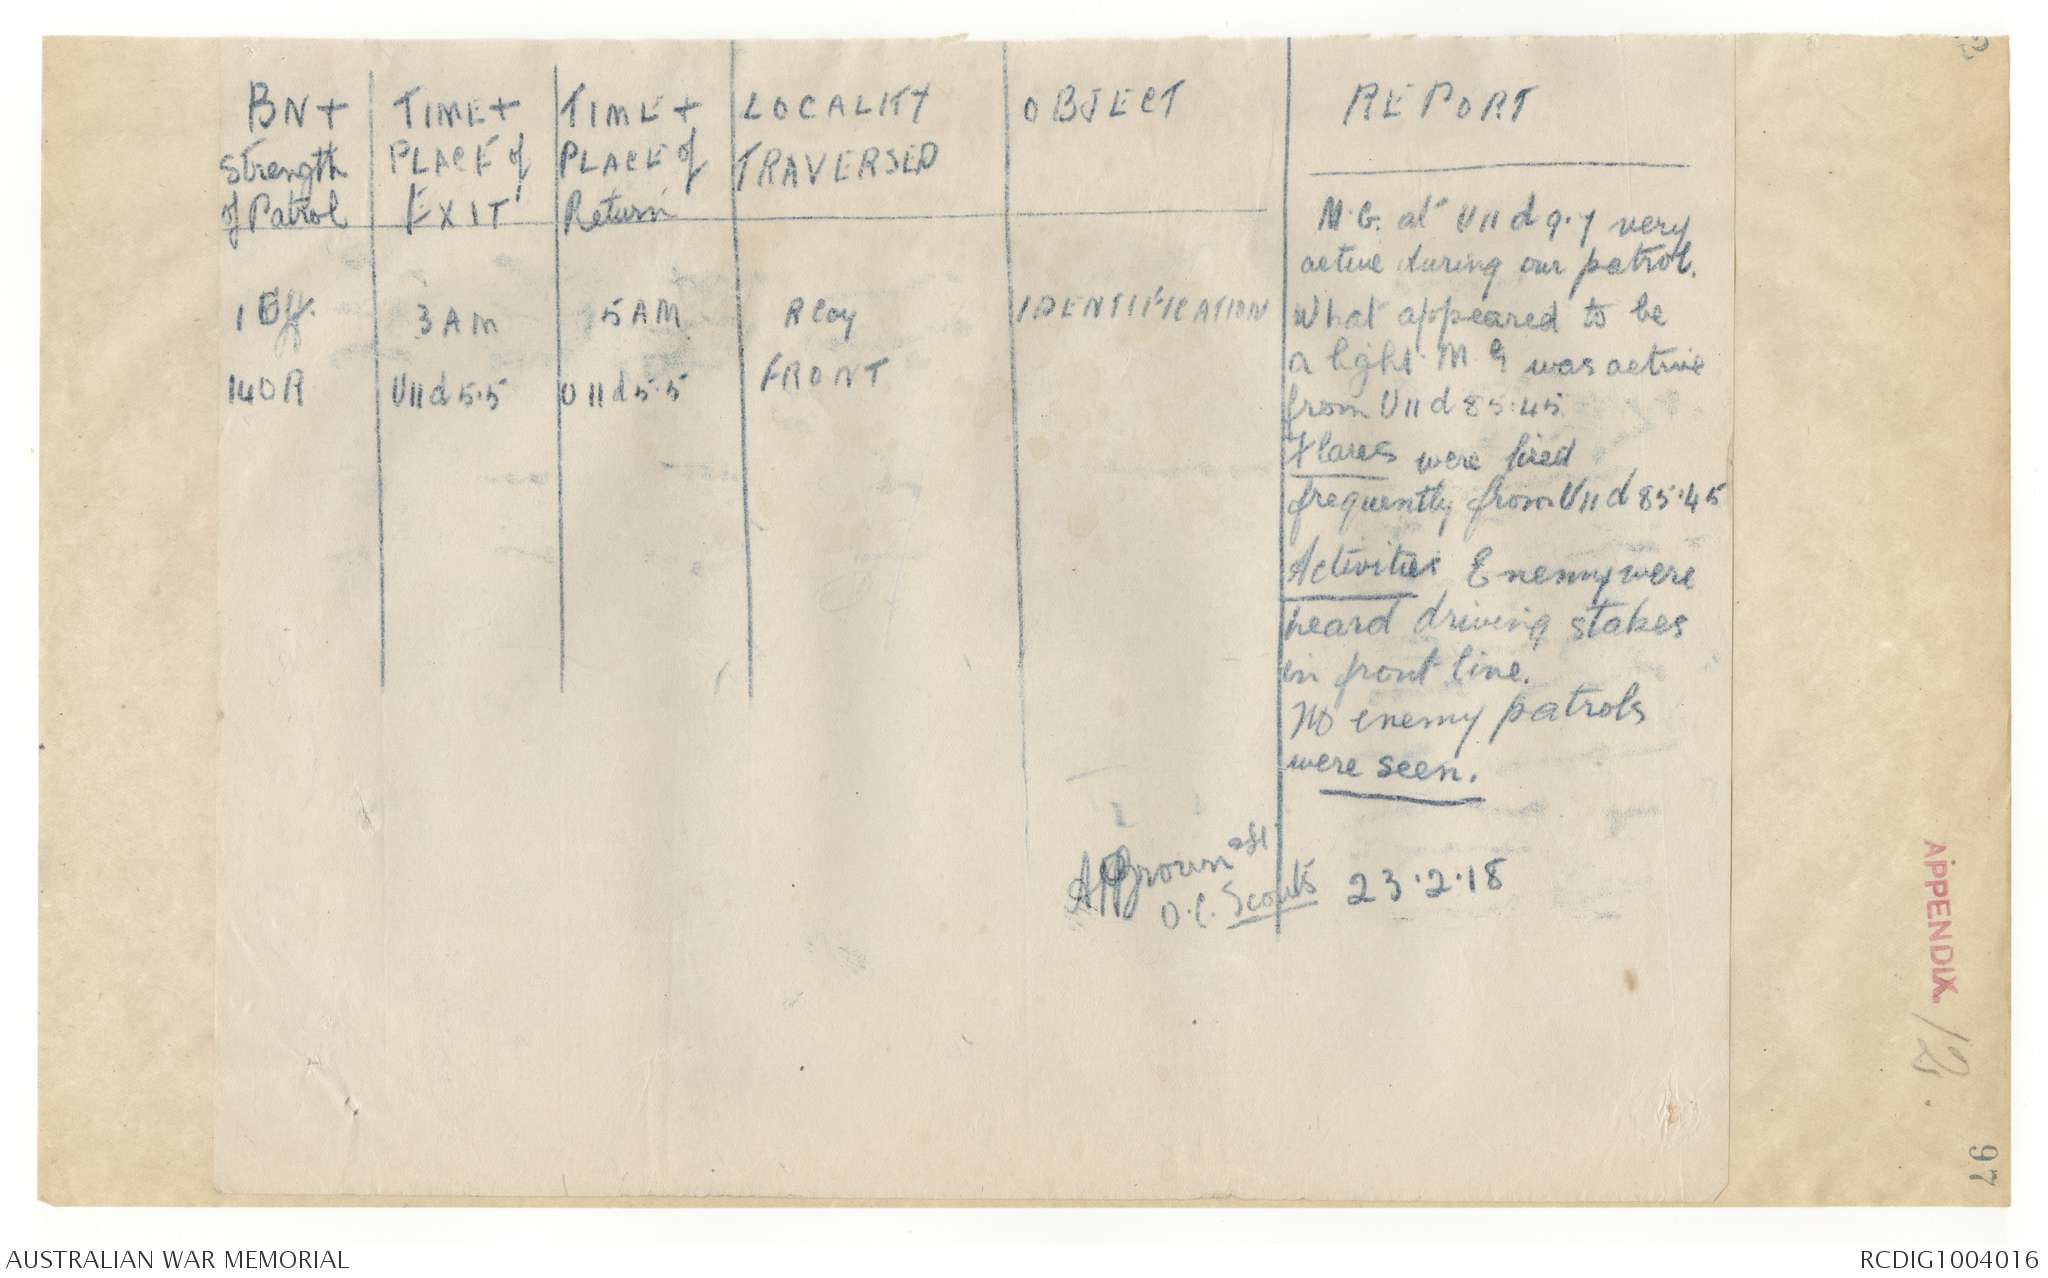 BN +
Strength
of Patrol
TIME +
PLACE of
EXIT
TIME +
PLACE of
Return
LOCALITY
TRAVERSED
OBJECT
REPORT
1 Off.
14 OR
3 AM
U11d 5.5
5 AM
U11d 5.5
R Coy
FRONT
IDENTIFICATION
M.G. at U11d 9.7 very
active during our patrol.
What appeared to be
a light M G was active
from U11d 85.45
Flares were fired
frequently from U11d 85.45
Activities Enemy were
heard driving stakes
in front line.
No enemy patrols
were seen.
Brown
O.C. Scouts
23.2.18
APPENDIX
12.
97
AUSTRALIAN WAR MEMORIAL
RCDIG1004016